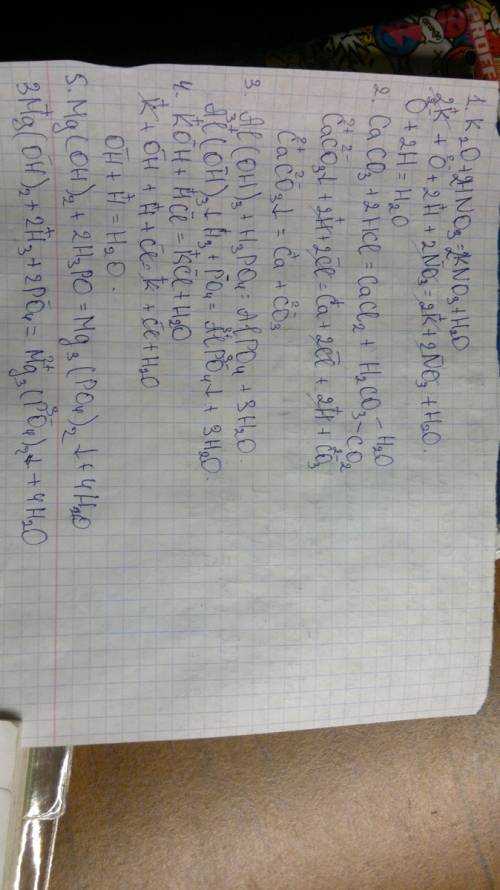 1. K₂O + 2HNO₃ = 2KNO₃ + H₂O
2K⁺ + O²⁻ + 2H⁺ + 2NO₃⁻ = 2K⁺ + 2NO₃⁻ + H₂O.
O²⁻ + 2H⁺ = H₂O
2. CaCO₃ + 2HCl = CaCl₂ + H₂CO₃ - H₂O - CO₂
Ca²⁺CO₃²⁻↓ + 2H⁺ + 2Cl⁻ = Ca⁺ + 2Cl⁻ + 2H⁺ + CO₃²⁻
Ca²⁺CO₃²⁻↓ = Ca²⁺ + CO₃²⁻
3. Al(OH)₃ + H₃PO₄ = AlPO₄ + 3H₂O.
Al³⁺(OH⁻)₃↓ H₃⁺ + PO₄ = Al³⁺PO₄³⁻↓ + 3H₂O.
4. K⁺OH⁻ + H⁺Cl⁻ = K⁺Cl⁻ + H₂O
K⁺ + OH⁻ + H⁺ + Cl⁻ = K⁺ + Cl⁻ + H₂O
OH⁻ + H⁺ = H₂O.
5. Mg(OH)₂ + 2H₃PO = Mg₃(PO₄)₂↓ + 4H₂O
3Mg⁺(OH⁻)₂ + 2H₃⁺ + 2PO₄ = Mg₃²⁺(PO₄³⁻)₂↓ + 4H₂O